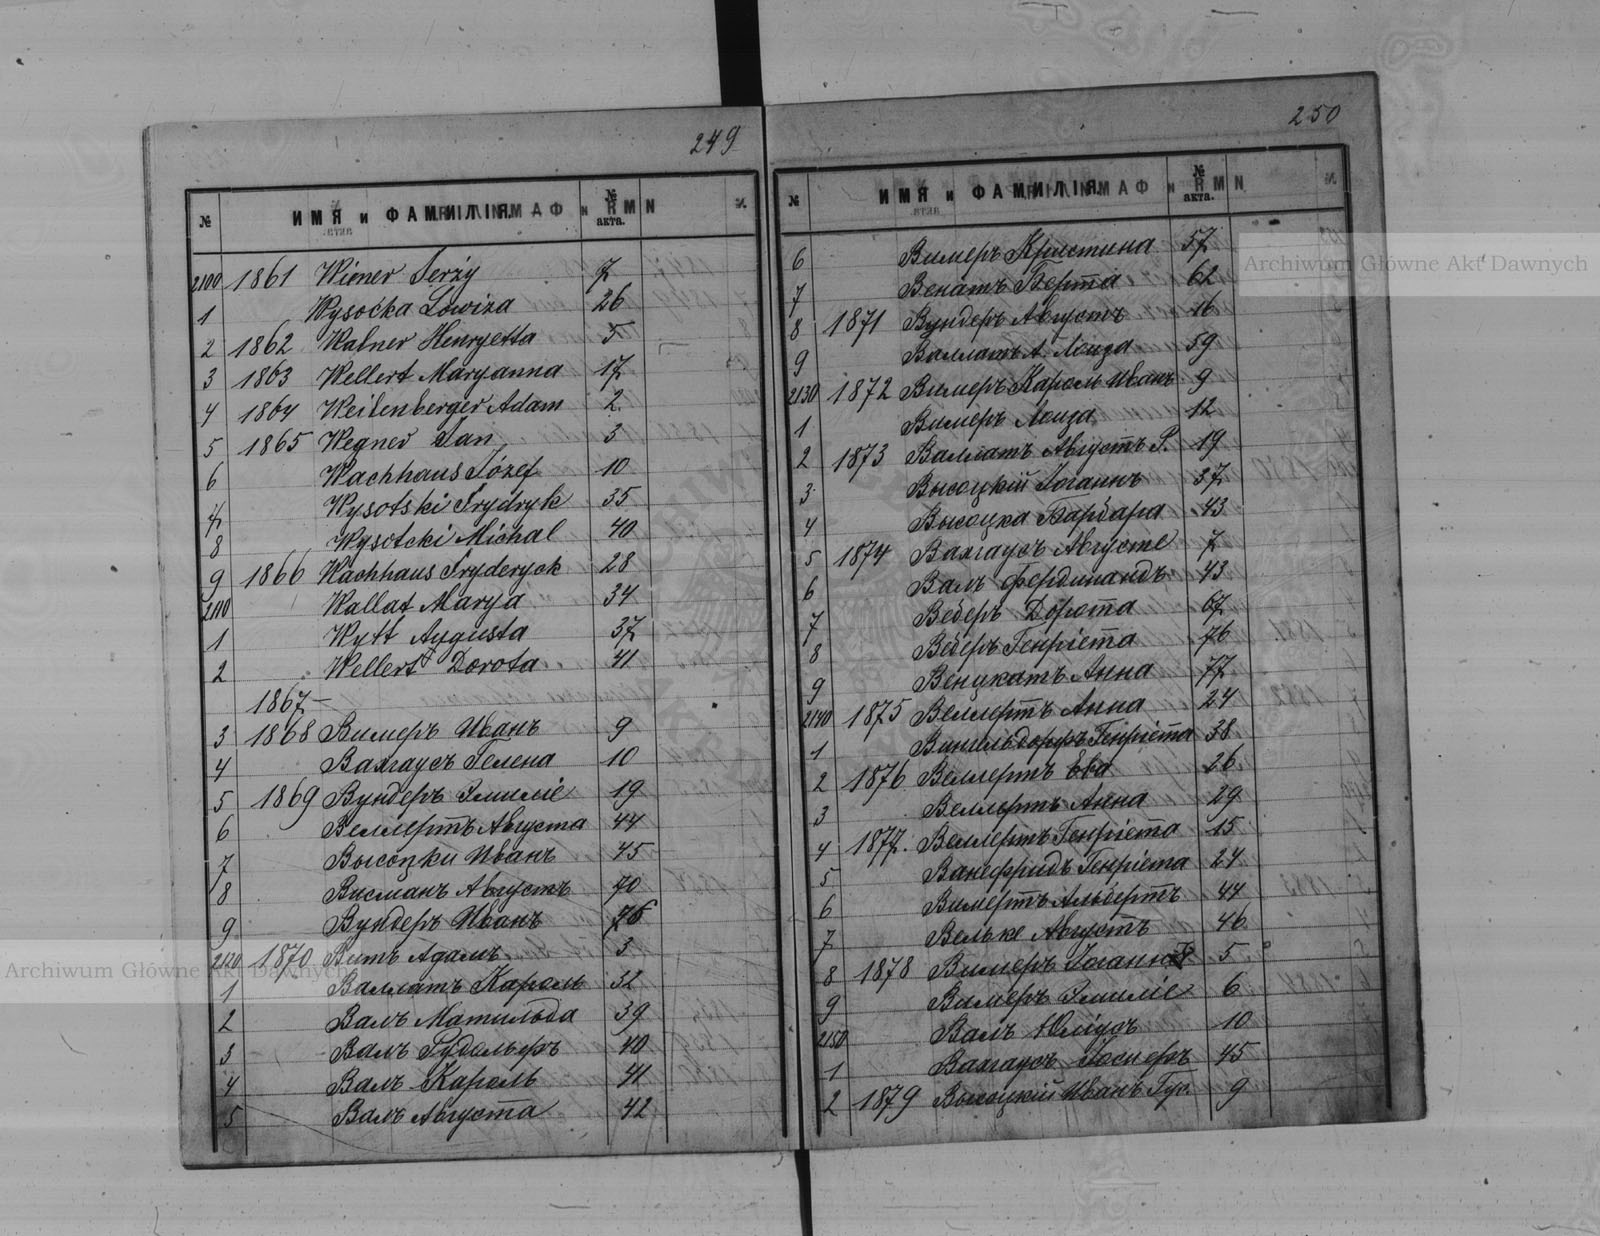 249
№ ИМЯ и ФАМИЛІЯ № акта.
2100 1861 Wiener Jerzy 7
1 Wysocka Lowiza 26
2 1862 Walner Henryetta 5
3 1863 Wellert Maryanna 17
4 1864 Weilenberger Adam 2
5 1865 Wegner Jan 3
6 Wachhaus Józef 10
7 Wysotski Frydryk 35
8 Wysotcki Michal 40
9 1866 Wachhaus Fryderyck 28
2110 Wallat Marya 34
1 Wytt Augusta 37
2 Wellert Dorota 41
1867 —
3 1868 Вимеръ Иванъ 9
4 Вахгаусъ Гелена 10
5 1869 Вундеръ Эмиліе 19
6 Веллертъ Августа 44
7 Высоцки Иванъ 45
8 Висманъ Августъ 70
9 Вундеръ Иванъ 76
2120 1870 Витъ Адамъ 3
1 Валлатъ Кароль 32
2 Валъ Матильда 39
3 Валъ Рудольфъ 40
4 Валъ Кароль 41
5 Валъ Августа 42
250
№ ИМЯ и ФАМИЛІЯ № акта.
6 Вимеръ Кристина 57
7 Венатъ Берта 62
8 1871 Вундеръ Августъ 16
9 Валлатъ А. Лоиза 59
2130 1872 Вимеръ Кароль Иванъ 9
1 Вимеръ Лоиза 12
2 1873 Валлатъ Августъ Р. 19
3 Высоцкій Іоганнъ 37
4 Высоцка Барбара 43
5 1874 Вахгаусъ Августе 7
6 Валъ Фердинандъ 43
7 Веберъ Дорота 67
8 Веберъ Генріета 76
9 Веникатъ Анна 77
2140 1875 Веллертъ Анна 24
1 Винльдорфъ Генріета 38
2 1876 Веллертъ Ева 26
3 Веллертъ Анна 29
4 1877 Веллертъ Генріета 15
5 Ванефридъ Генріета 24
6 Вимертъ Альбертъ 44
7 Вельке Августъ 46
8 1878 Вимеръ Іоганнъ 5
9 Вимеръ Эмиліе 6
2150 Валъ Юліусъ 10
1 Вахгаусъ Іосифъ 45
2 1879 Высоцкій Иванъ Гус. 9
Archiwum Główne Akt Dawnych
Archiwum Główne Akt Dawnych